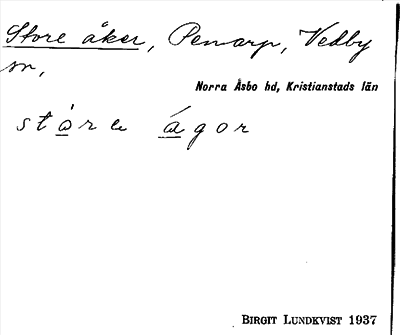 Store åker, Penarp, Vedby
sn,
Norra Åsbo hd, Kristianstads län
ståre ågor
BIRGIT LUNDKVIST 1937